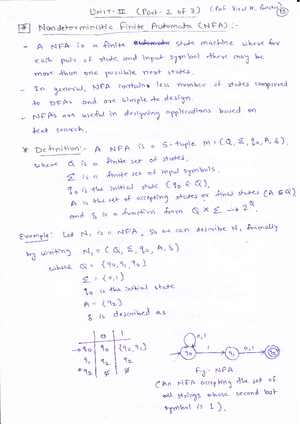 UNIT-II (Part-2 of 3) (Prof. Viral H.
* Nondeterministic Finite Automata (NFA) :-
- A NFA is a finite state machine where for
each pair of state and input symbol there may be
more than one possible next states.
- In general, NFA contains less number of states compared
to DFAs and are simple to design.
- NFAs are useful in designing applications based on
text search.
* Definition:- A NFA is a 5-tuple M = (Q, Σ, q0, A, δ),
where Q is a finite set of states.
Σ is a finite set of input symbols.
q0 is the initial state (q0 ∈ Q).
A is the set of accepting states or final states (A ⊆ Q)
and δ is a function from Q × Σ → 2^Q.
Example: Let N1 is a NFA. So we can describe N1 formally
by writing N1 = (Q, Σ, q0, A, δ)
where Q = {q0, q1, q2}
Σ = {0,1}
q0 is the initial state
A = {q2}
δ is described as
0 1
→q0 q0 {q0,q1}
q1 q2 q2
*q2 ø ø
0,1
q0 1 q1 0,1 q2
Fig:- NFA
(An NFA accepting the set of
all strings whose second last
symbol is 1).